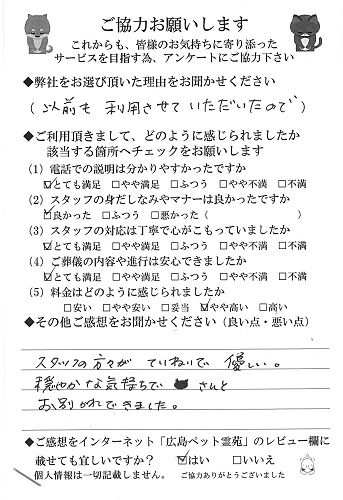 ご協力お願いします
これからも、皆様のお気持ちに寄り添った
サービスを目指す為、アンケートにご協力下さい
◆弊社をお選び頂いた理由をお聞かせください
(以前も 利用させて いただいたので)
◆ご利用頂きまして、どのように感じられましたか
該当する箇所へチェックをお願いします
(1) 電話での説明は分かりやすかったですか
☑とても満足 □やや満足 □ふつう □やや不満 □不満
(2) スタッフの身だしなみやマナーは良かったですか
☑良かった □ふつう □悪かった( )
(3) スタッフの対応は丁寧で心がこもっていましたか
☑とても満足 □やや満足 □ふつう □やや不満 □不満
(4) ご葬儀の内容や進行は安心できましたか
☑とても満足 □やや満足 □ふつう □やや不満 □不満
(5) 料金はどのように感じられましたか
□安い □やや安い □妥当 ☑やや高い □高い
◆その他ご感想をお聞かせください(良い点・悪い点)
スタッフの方々が ていねいで 優しい。
穏やかな気持ちで さんと
お別れできました。
◆ご感想をインターネット「広島ペット霊苑」のレビュー欄に
載せても宜しいですか? ☑はい □いいえ
個人情報は一切記載しません。 ご協力ありがとうございました